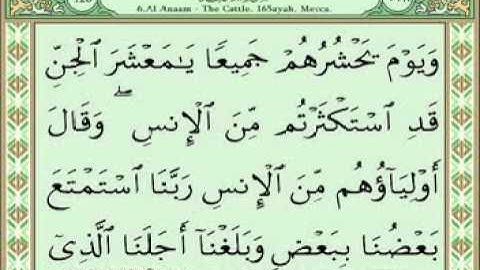 6.Al Anaam - The Cattle. 165ayah. Mecca.
وَيَوْمَ يَحْشُرُهُمْ جَمِيعًا يَٰمَعْشَرَ ٱلْجِنِّ
قَدِ ٱسْتَكْثَرْتُم مِّنَ ٱلْإِنسِ ۖ وَقَالَ
أَوْلِيَآؤُهُم مِّنَ ٱلْإِنسِ رَبَّنَا ٱسْتَمْتَعَ
بَعْضُنَا بِبَعْضٍ وَبَلَغْنَآ أَجَلَنَا ٱلَّذِىٓ